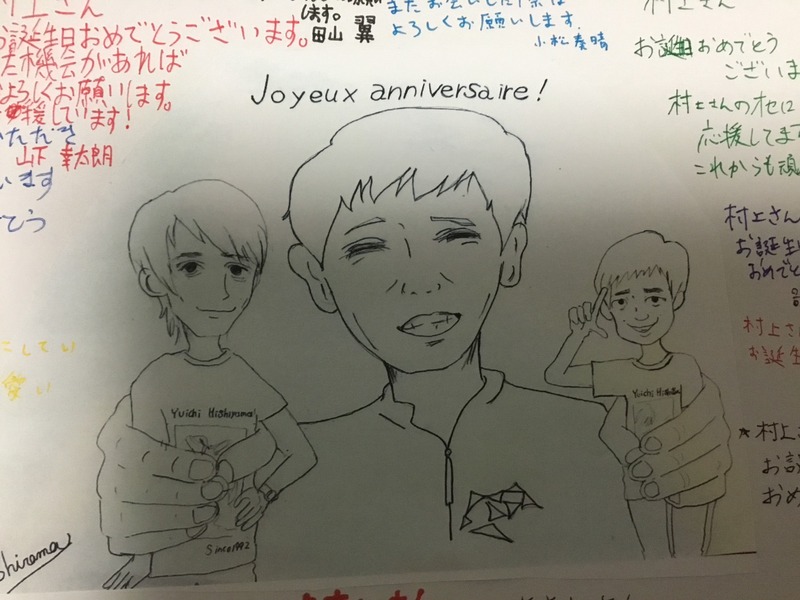 村上さん
お誕生日おめでとうございます。
た機会があれば
よろしくお願いします。
援しています!
いただき
山下 幸太朗
います
とう
にしてい
します。
田山 翼
よろしくお願いします.
小松 奏晴
村上さん
お誕生日おめでとう
ございま
村上さんのオセロ
応援してます
これからも頑
Joyeux anniversaire!
村上さん
お誕生日
おめでと
村上さ
お誕生
★村上さ
お誕
おめ
Yuichi Hishiyama
Since1992